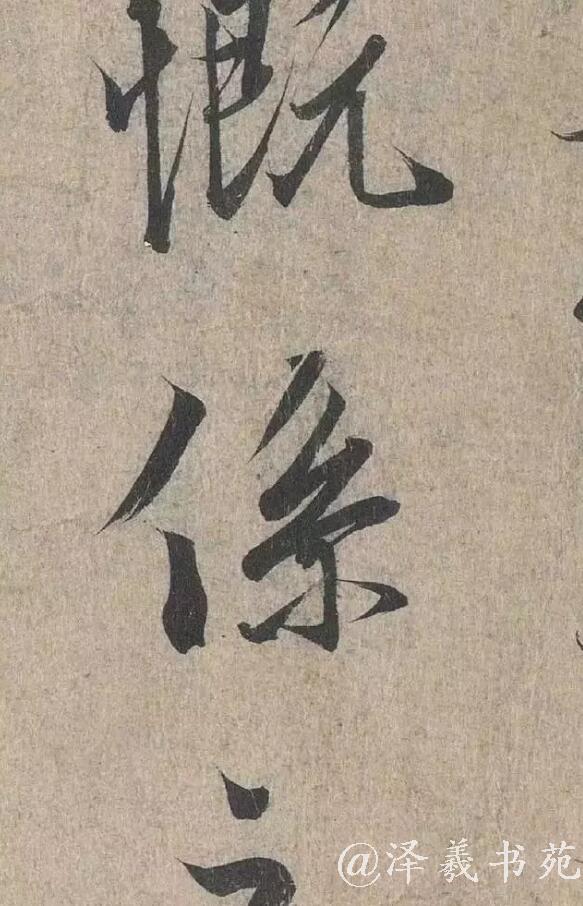 慨係之
@泽羲书苑